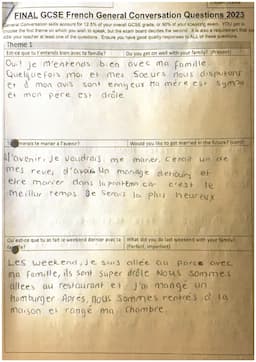 FINAL GCSE French General Conversation Questions 2023
General Conversation skills account for 12.5% of your overall GCSE grade, or 50% of your speaking exam. You get to
choose the first theme on which you wish to speak, but the exam board decides the second. It is also a requirement that you
ask your teacher at least one of the questions. Ensure you have good quality responses to ALL of these questions.
Theme 1
Est-ce que tu t'entends bien avec ta famille? Do you get on well with your family? (Present)
Oui je m'entends bien avec ma famille.
Quelquefois moi et mes Sœurs nous disputons
et à mon avis sont ennyeux Ma mère est sympa
et mon père est drôle.
marais te marier à l'avenir? Would you like to get married in the future?
l'avenir, je voudrais me marier, cerait un de
mes reves, d'avoir un mariage dehours et
etre marier dans le printemp car c'est le
meilleur temps Je serais la plus heureux
Qu'est-ce que tu as fait le weekend dernier avec ta What did you do last weekend with your family?
(Perfect, imperfect)
Les weekend, je suis allée au parce avec
ma famille, ils sont super drôle Nous sommes
allees au restaurant et j'ai mangé un
hamburger Apres, nous sommes rentrés à la
maison et rangé ma chambre.